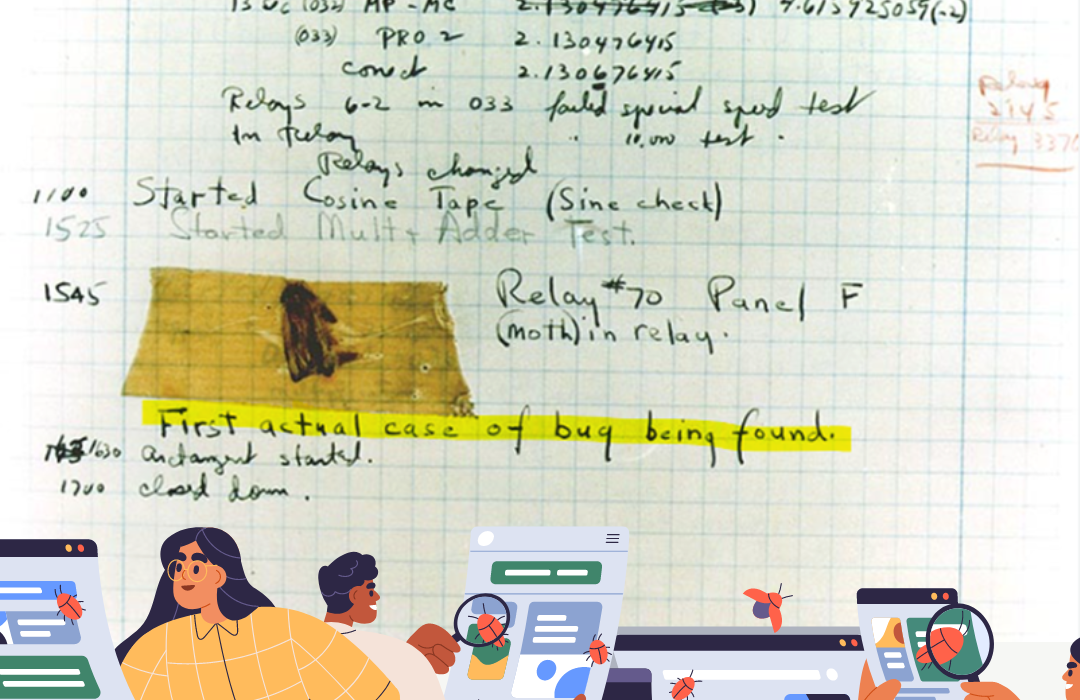 13 uc (032) MP - MC 2.130476415 4.615925059(-2)
(033) PRO 2 2.130476415
conect 2.130676415
Relays 6-2 in 033 failed special speed test
In Relay " 10,000 test .
Relays changed
Relay
2145
Relay 3370
1100 Started Cosine Tape (Sine check)
1525 Started Mult + Adder Test.
1545 Relay #70 Panel F
(moth) in relay.
First actual case of bug being found.
1630 arctangent started.
1700 closed down .